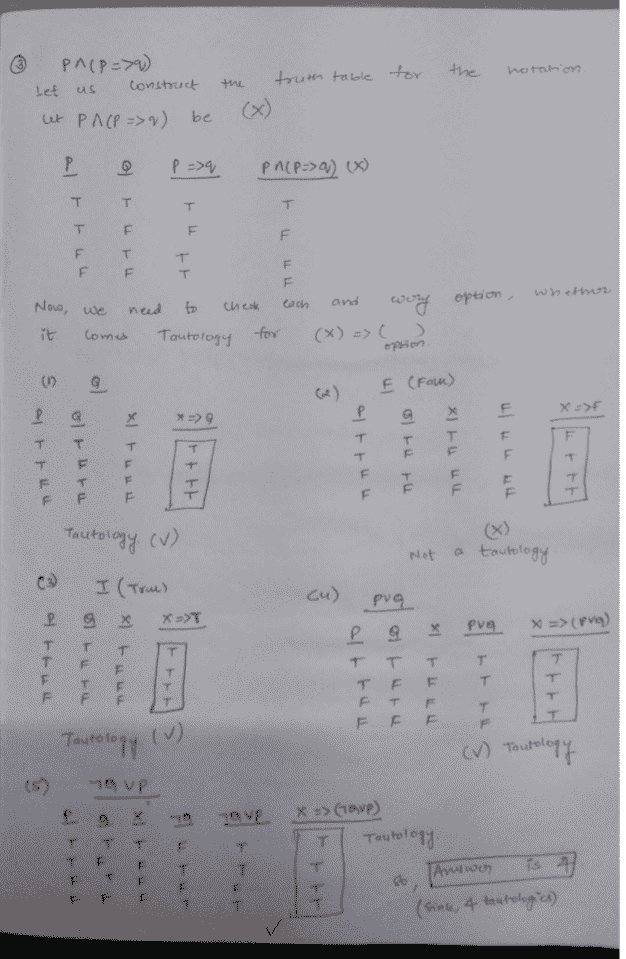 ③ P∧(P=>q)
Let us construct the truth table for the notation.
Let P∧(P=>q) be (X)
P Q P=>q P∧(P=>q) (X)
T T T T
T F F F
F T T F
F F T F
Now, we need to check each and every option, whether
it comes Tautology for (X) => ( )
option
(1) Q
P Q X X=>Q
T T T T
T F F T
F T F T
F F F T
Tautology (V)
(2) F (False)
P Q X F X=>F
T T T F F
T F F F T
F T F F T
F F F F T
(X)
Not a tautology
(3) T (True)
P Q X X=>T
T T T T
T F F T
F T F T
F F F T
Tautology (V)
(4) PVQ
P Q X PVQ X=>(PVQ)
T T T T T
T F F T T
F T F T T
F F F F T
(V) Tautology
(5) ¬Q VP
P Q X ¬Q ¬QVP X=>(¬QVP)
T T T F T T
T F F T T T
F T F F F T
F F F T T T
Tautology.
So, Answer is 4
(Since, 4 tautologies)